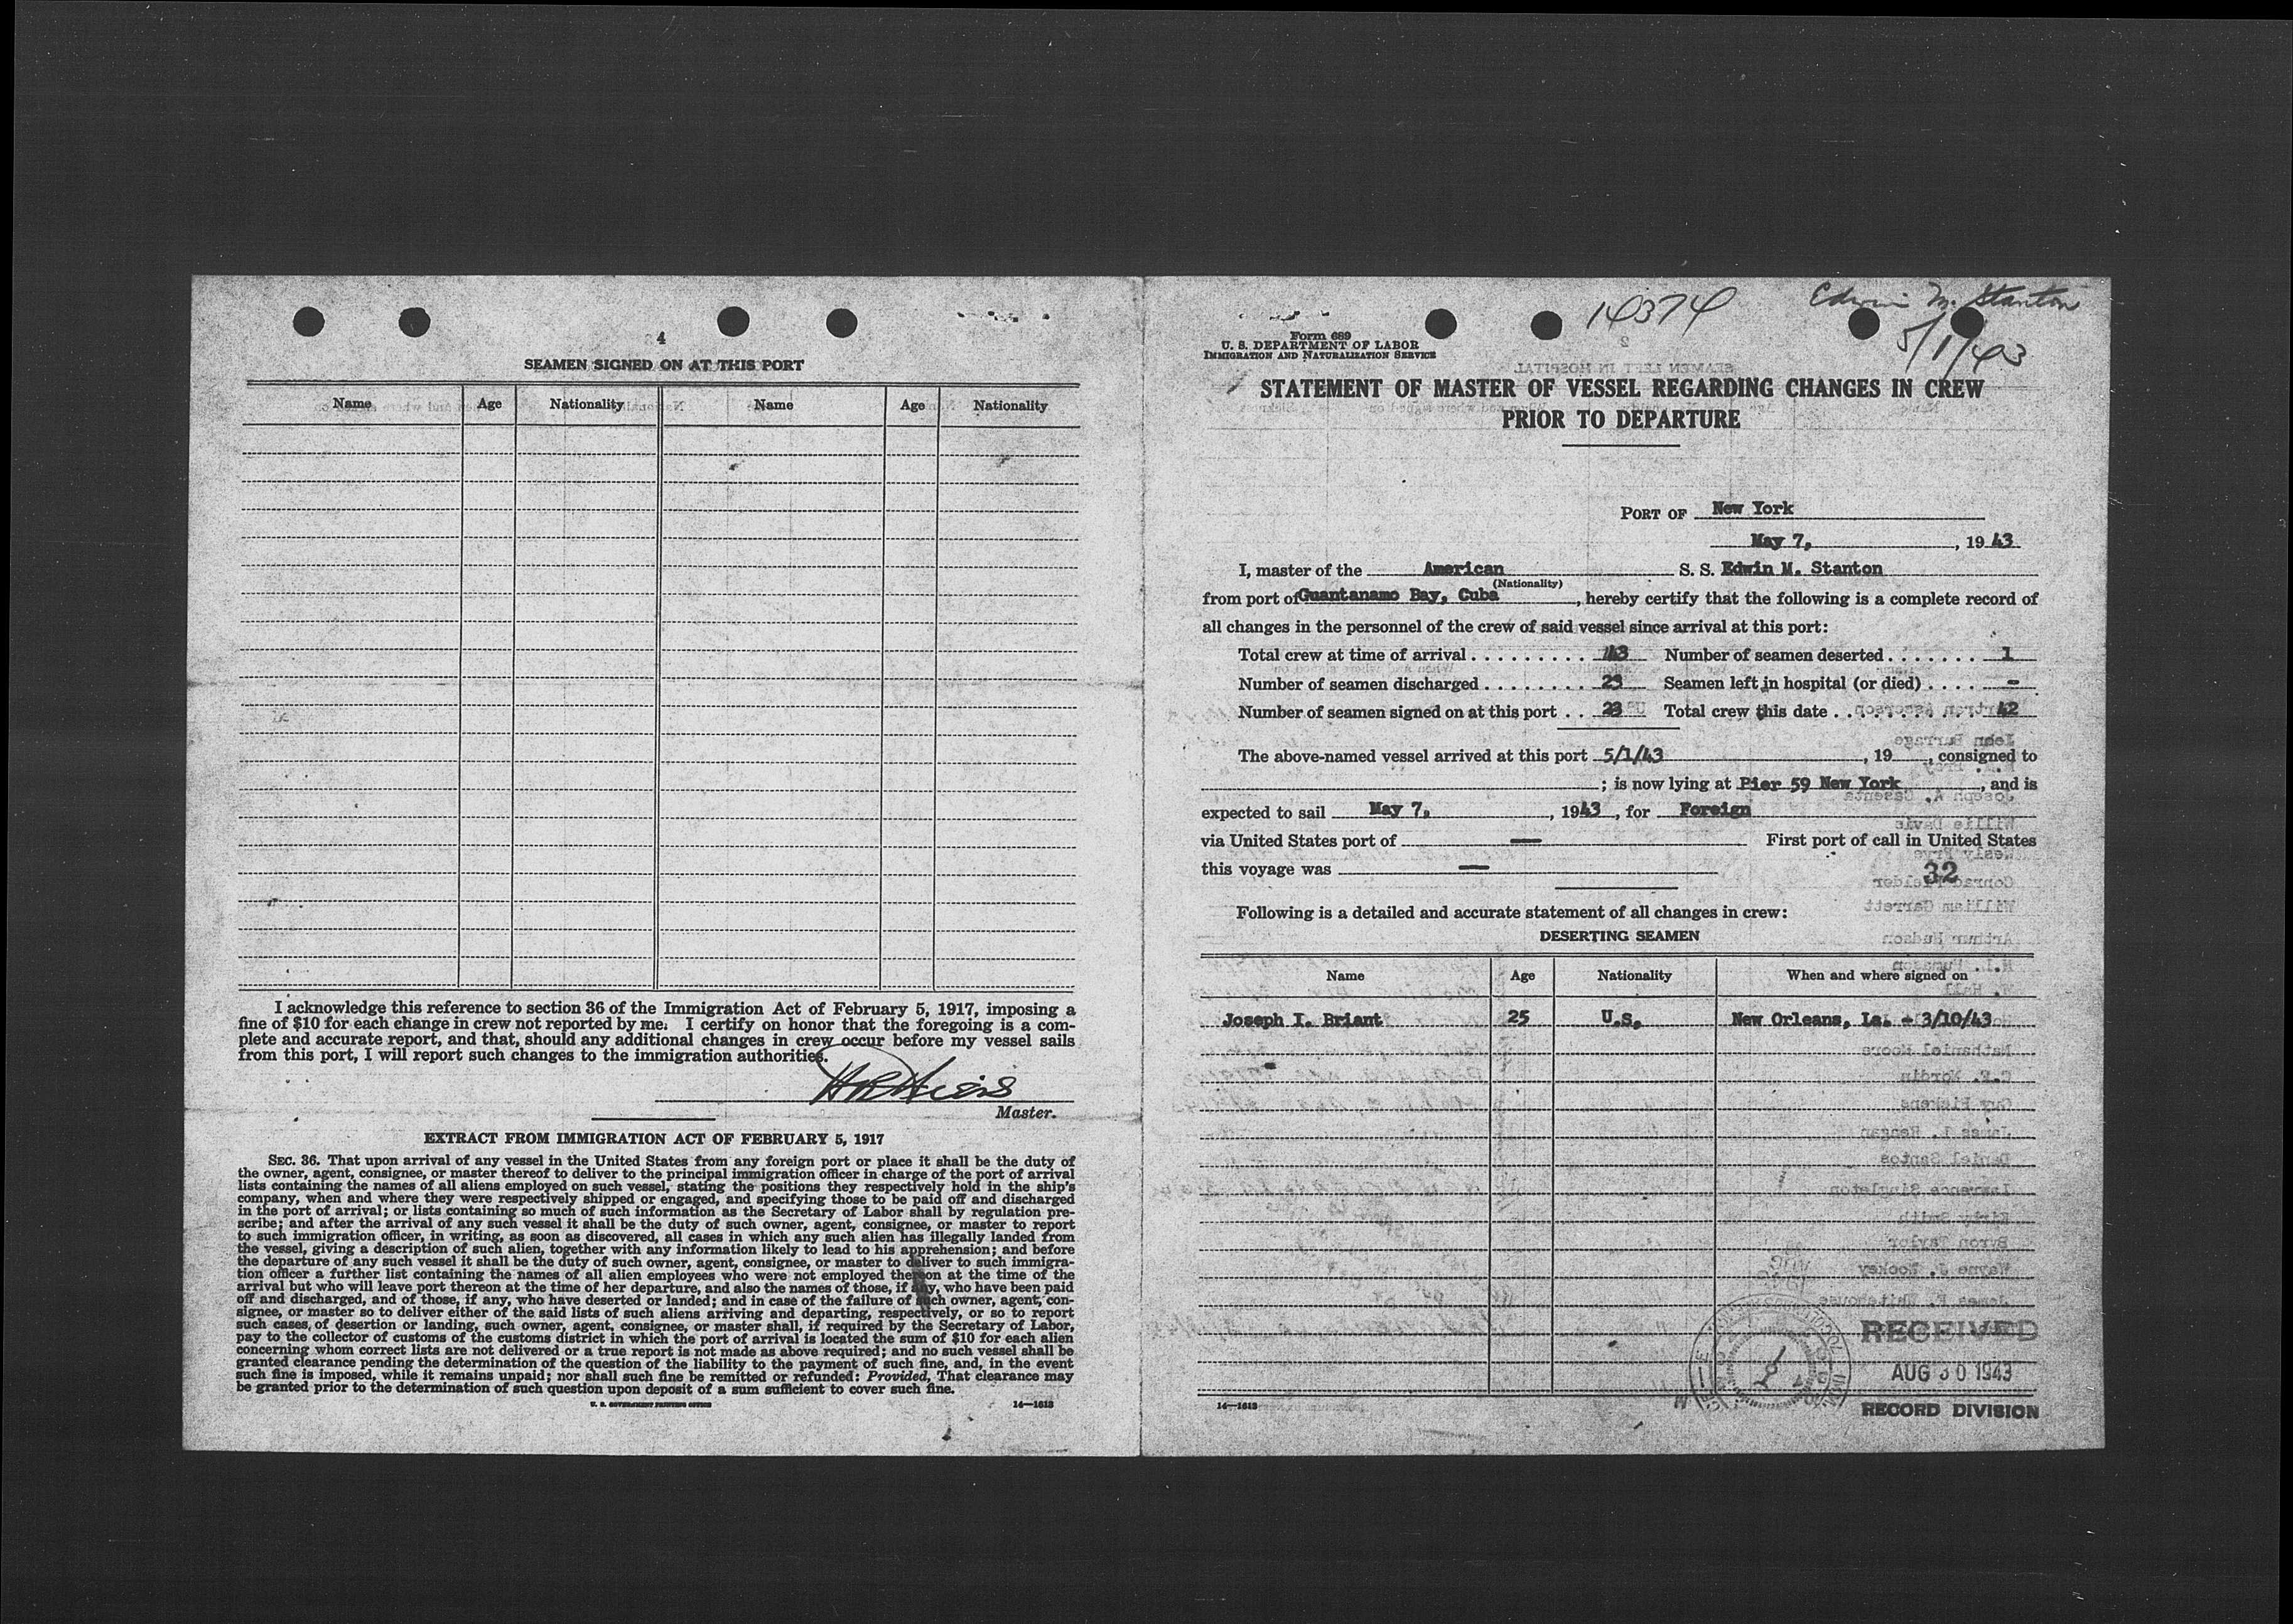 4
SEAMEN SIGNED ON AT THIS PORT
Name Age Nationality Name Age Nationality
I acknowledge this reference to section 36 of the Immigration Act of February 5, 1917, imposing a
fine of $10 for each change in crew not reported by me. I certify on honor that the foregoing is a com-
plete and accurate report, and that, should any additional changes in crew occur before my vessel sails
from this port, I will report such changes to the immigration authorities.
Master.
EXTRACT FROM IMMIGRATION ACT OF FEBRUARY 5, 1917
SEC. 36. That upon arrival of any vessel in the United States from any foreign port or place it shall be the duty of
the owner, agent, consignee, or master thereof to deliver to the principal immigration officer in charge of the port of arrival
lists containing the names of all aliens employed on such vessel, stating the positions they respectively hold in the ship's
company, when and where they were respectively shipped or engaged, and specifying those to be paid off and discharged
in the port of arrival; or lists containing so much of such information as the Secretary of Labor shall by regulation pre-
scribe; and after the arrival of any such vessel it shall be the duty of such owner, agent, consignee, or master to report
to such immigration officer, in writing, as soon as discovered, all cases in which any such alien has illegally landed from
the vessel, giving a description of such alien, together with any information likely to lead to his apprehension; and before
the departure of any such vessel it shall be the duty of such owner, agent, consignee, or master to deliver to such immigra-
tion officer a further list containing the names of all alien employees who were not employed thereon at the time of the
arrival but who will leave port thereon at the time of her departure, and also the names of those, if any, who have been paid
off and discharged, and of those, if any, who have deserted or landed; and in case of the failure of such owner, agent, con-
signee, or master so to deliver either of the said lists of such aliens arriving and departing, respectively, or so to report
such cases of desertion or landing, such owner, agent, consignee, or master shall, if required by the Secretary of Labor,
pay to the collector of customs of the customs district in which the port of arrival is located the sum of $10 for each alien
concerning whom correct lists are not delivered or a true report is not made as above required; and no such vessel shall be
granted clearance pending the determination of the question of the liability to the payment of such fine, and, in the event
such fine is imposed, while it remains unpaid; nor shall such fine be remitted or refunded: Provided, That clearance may
be granted prior to the determination of such question upon deposit of a sum sufficient to cover such fine.
U. S. GOVERNMENT PRINTING OFFICE 14—1613
14374 Edwin M. Stanton
5/1/43
Form 689
U. S. DEPARTMENT OF LABOR
IMMIGRATION AND NATURALIZATION SERVICE
STATEMENT OF MASTER OF VESSEL REGARDING CHANGES IN CREW
PRIOR TO DEPARTURE
PORT OF New York
May 7, , 1943
I, master of the American S. S. Edwin M. Stanton
(Nationality)
from port of Guantanamo Bay, Cuba , hereby certify that the following is a complete record of
all changes in the personnel of the crew of said vessel since arrival at this port:
Total crew at time of arrival . . . . . . . . . . 43 Number of seamen deserted . . . . . . . 1
Number of seamen discharged . . . . . . . . . 23 Seamen left in hospital (or died) . . . . -
Number of seamen signed on at this port . . 23 Total crew this date . . . . . . . . . . . 42
The above-named vessel arrived at this port 5/1/43 , 19 , consigned to
; is now lying at Pier 59 New York , and is
expected to sail May 7, , 1943, for Foreign
via United States port of — First port of call in United States
this voyage was —
32
Following is a detailed and accurate statement of all changes in crew:
DESERTING SEAMEN
Name Age Nationality When and where signed on
Joseph I. Briant 25 U.S. New Orleans, La. - 3/10/43
RECEIVED
AUG 30 1943
RECORD DIVISION
14—1613